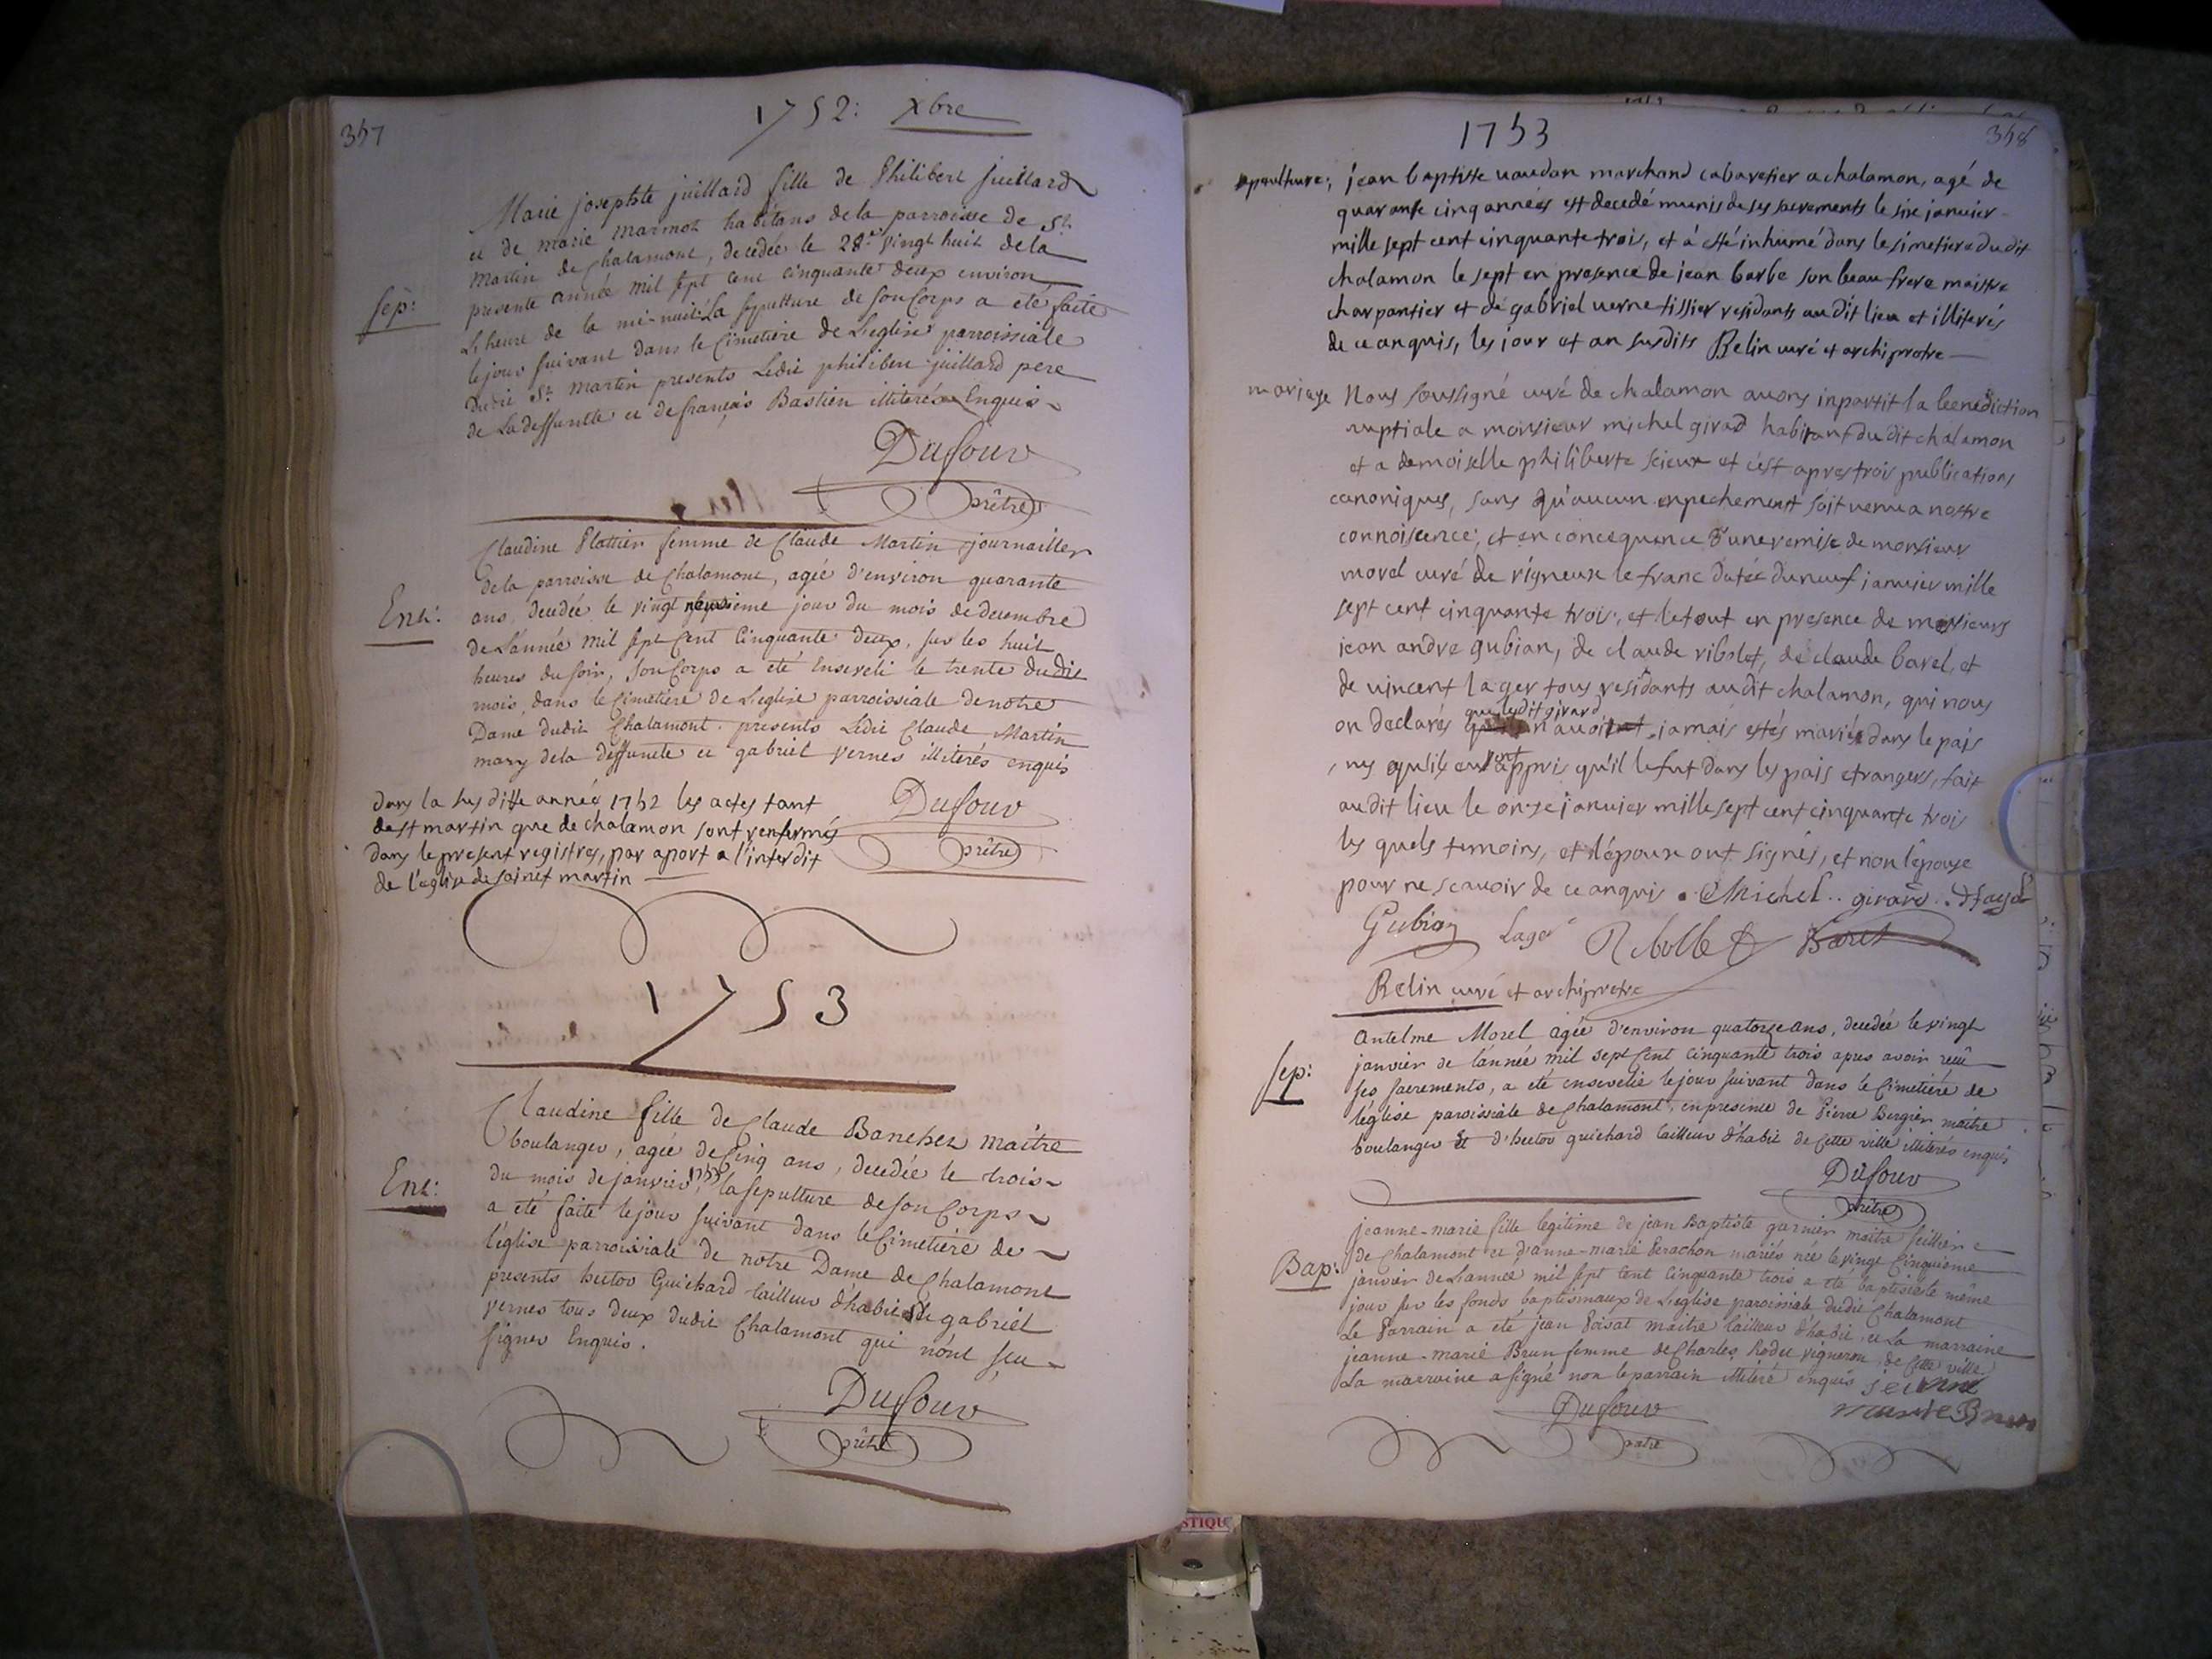 347
1752: xbre
Marie josephte juillard fille de Philibert juillard
et de marie marmot habitans de la parroisse de St
Martin de Chalamont, decedée le 28e vingt huit de la
presente année mil sept cent cinquante deux environ
sep:
L'heure de la mi-nuit. La sepulture de son Corps a eté faite
le jour suivant dans le Cimetiere de L'eglise parroissiale
dudit St martin presents Ledit philibert juillard pere
de La deffuncte et de françois Bastien illiterés Enquis
Dufour
prêtre
Claudine Plattier femme de Claude Martin journaillier
de la parroisse de Chalamont, agée d'environ quarante
Ent:
ans, decedée le vingt neuvieme jour du mois de decembre
de L'année mil sept Cent Cinquante deux, sur les huit
heures du soir, son Corps a eté Enseveli le trente dudit
mois, dans le Cimetiere de L'eglise parroissiale de notre
Dame dudit Chalamont. presents Ledit Claude Martin
mary de la deffuncte et gabriel vernes illiterés enquis
Dufour
prêtre
dans la sus ditte année 1752 les actes tant
de st martin que de chalamon sont renfermés
dans le present registres, par aport a l'interdit
de l'eglise de sainct martin
1753
Claudine fille de Claude Banchet maitre
boulanger, agée de Cinq ans, decedée le trois
Ent:
du mois de janvier 1753, la sepulture de son Corps
a eté faite le jour suivant dans le Cimetiere de
l'église parroissiale de notre Dame de Chalamont
presents hector Guichard tailleur d'habit et gabriel
vernes tous deux dudit Chalamont qui n'ont seu
signer Enquis.
Dufour
prêtre
1753
348
sepulture: jean baptiste vaudan marchand cabaretier a chalamon, agé de
quarante cinq années est decedé munis de ses sacrements le six janvier
mille sept cent cinquante trois, et á esté inhumé dans le simetiere du dit
chalamon le sept en presence de jean barbe son beau frere maistre
charpantier et de gabriel verne tissier residants au dit lieu et illiterés
de ce anquis, les jour et an susdits Relin curé et archipretre
mariage Nous soussigné curé de chalamon avons inpartit la benediction
nuptiale a monsieur michel girad habitant du dit chalamon
et a demoiselle philiberte scieux et c'est apres trois publications
canoniques, sans qu'aucun enpechement soit venu a nostre
connoiscence; et en concequence d'une remise de monsieur
morel curé de rigneux le franc datée du neuf janvier mille
sept cent cinquante trois, et le tout en presence de messieurs
jean andre gubian, de claude ribolet, de claude barel, et
de vincent lager tous residants au dit chalamon, qui nous
on declarés que ledit girard n'avoit jamais estés mariés dans le pais
, ny qu'ils eussent appris qu'il le fut dans les pais etrangers, fait
au dit lieu le onze janvier mille sept cent cinquante trois
les quels temoins, et l'epoux ont signés, et non l'epouse
pour ne scavoir de ce anquis. Michel.. girard.
Gubian Lager Ribollet Barel
Relin curé et archipretre
Sep:
antelme Morel agée d'environ quatorze ans, decedée le vingt
janvier de l'année mil sept Cent Cinquante trois apres avoir reçû
ses sacrements, a eté ensevelie le jour suivant dans le Cimetiere de
l'église paroissiale de Chalamont, en presence de Pierre Bergier maitre
boulanger et d'hector guichard tailleur d'habit de Cette ville illiterés enquis
Dufour
prêtre
Bap:
jeanne-marie fille legitime de jean Baptiste garnier maitre sellier
de Chalamont et d'anne-marie Perachon mariés née le vingt Cinquieme
janvier de L'année mil sept Cent Cinquante trois a eté baptisée le même
jour sur les fonds baptismaux de L'eglise paroissiale dudit Chalamont
Le Parrain a eté jean Poisat maitre tailleur d'habit, et La marraine
jeanne-marie Brun femme de Charles Rodet vigneron de Cette ville
La marraine a signé non le parrain illiteré enquis jeanne
marie Brun
Dufour
prêtre